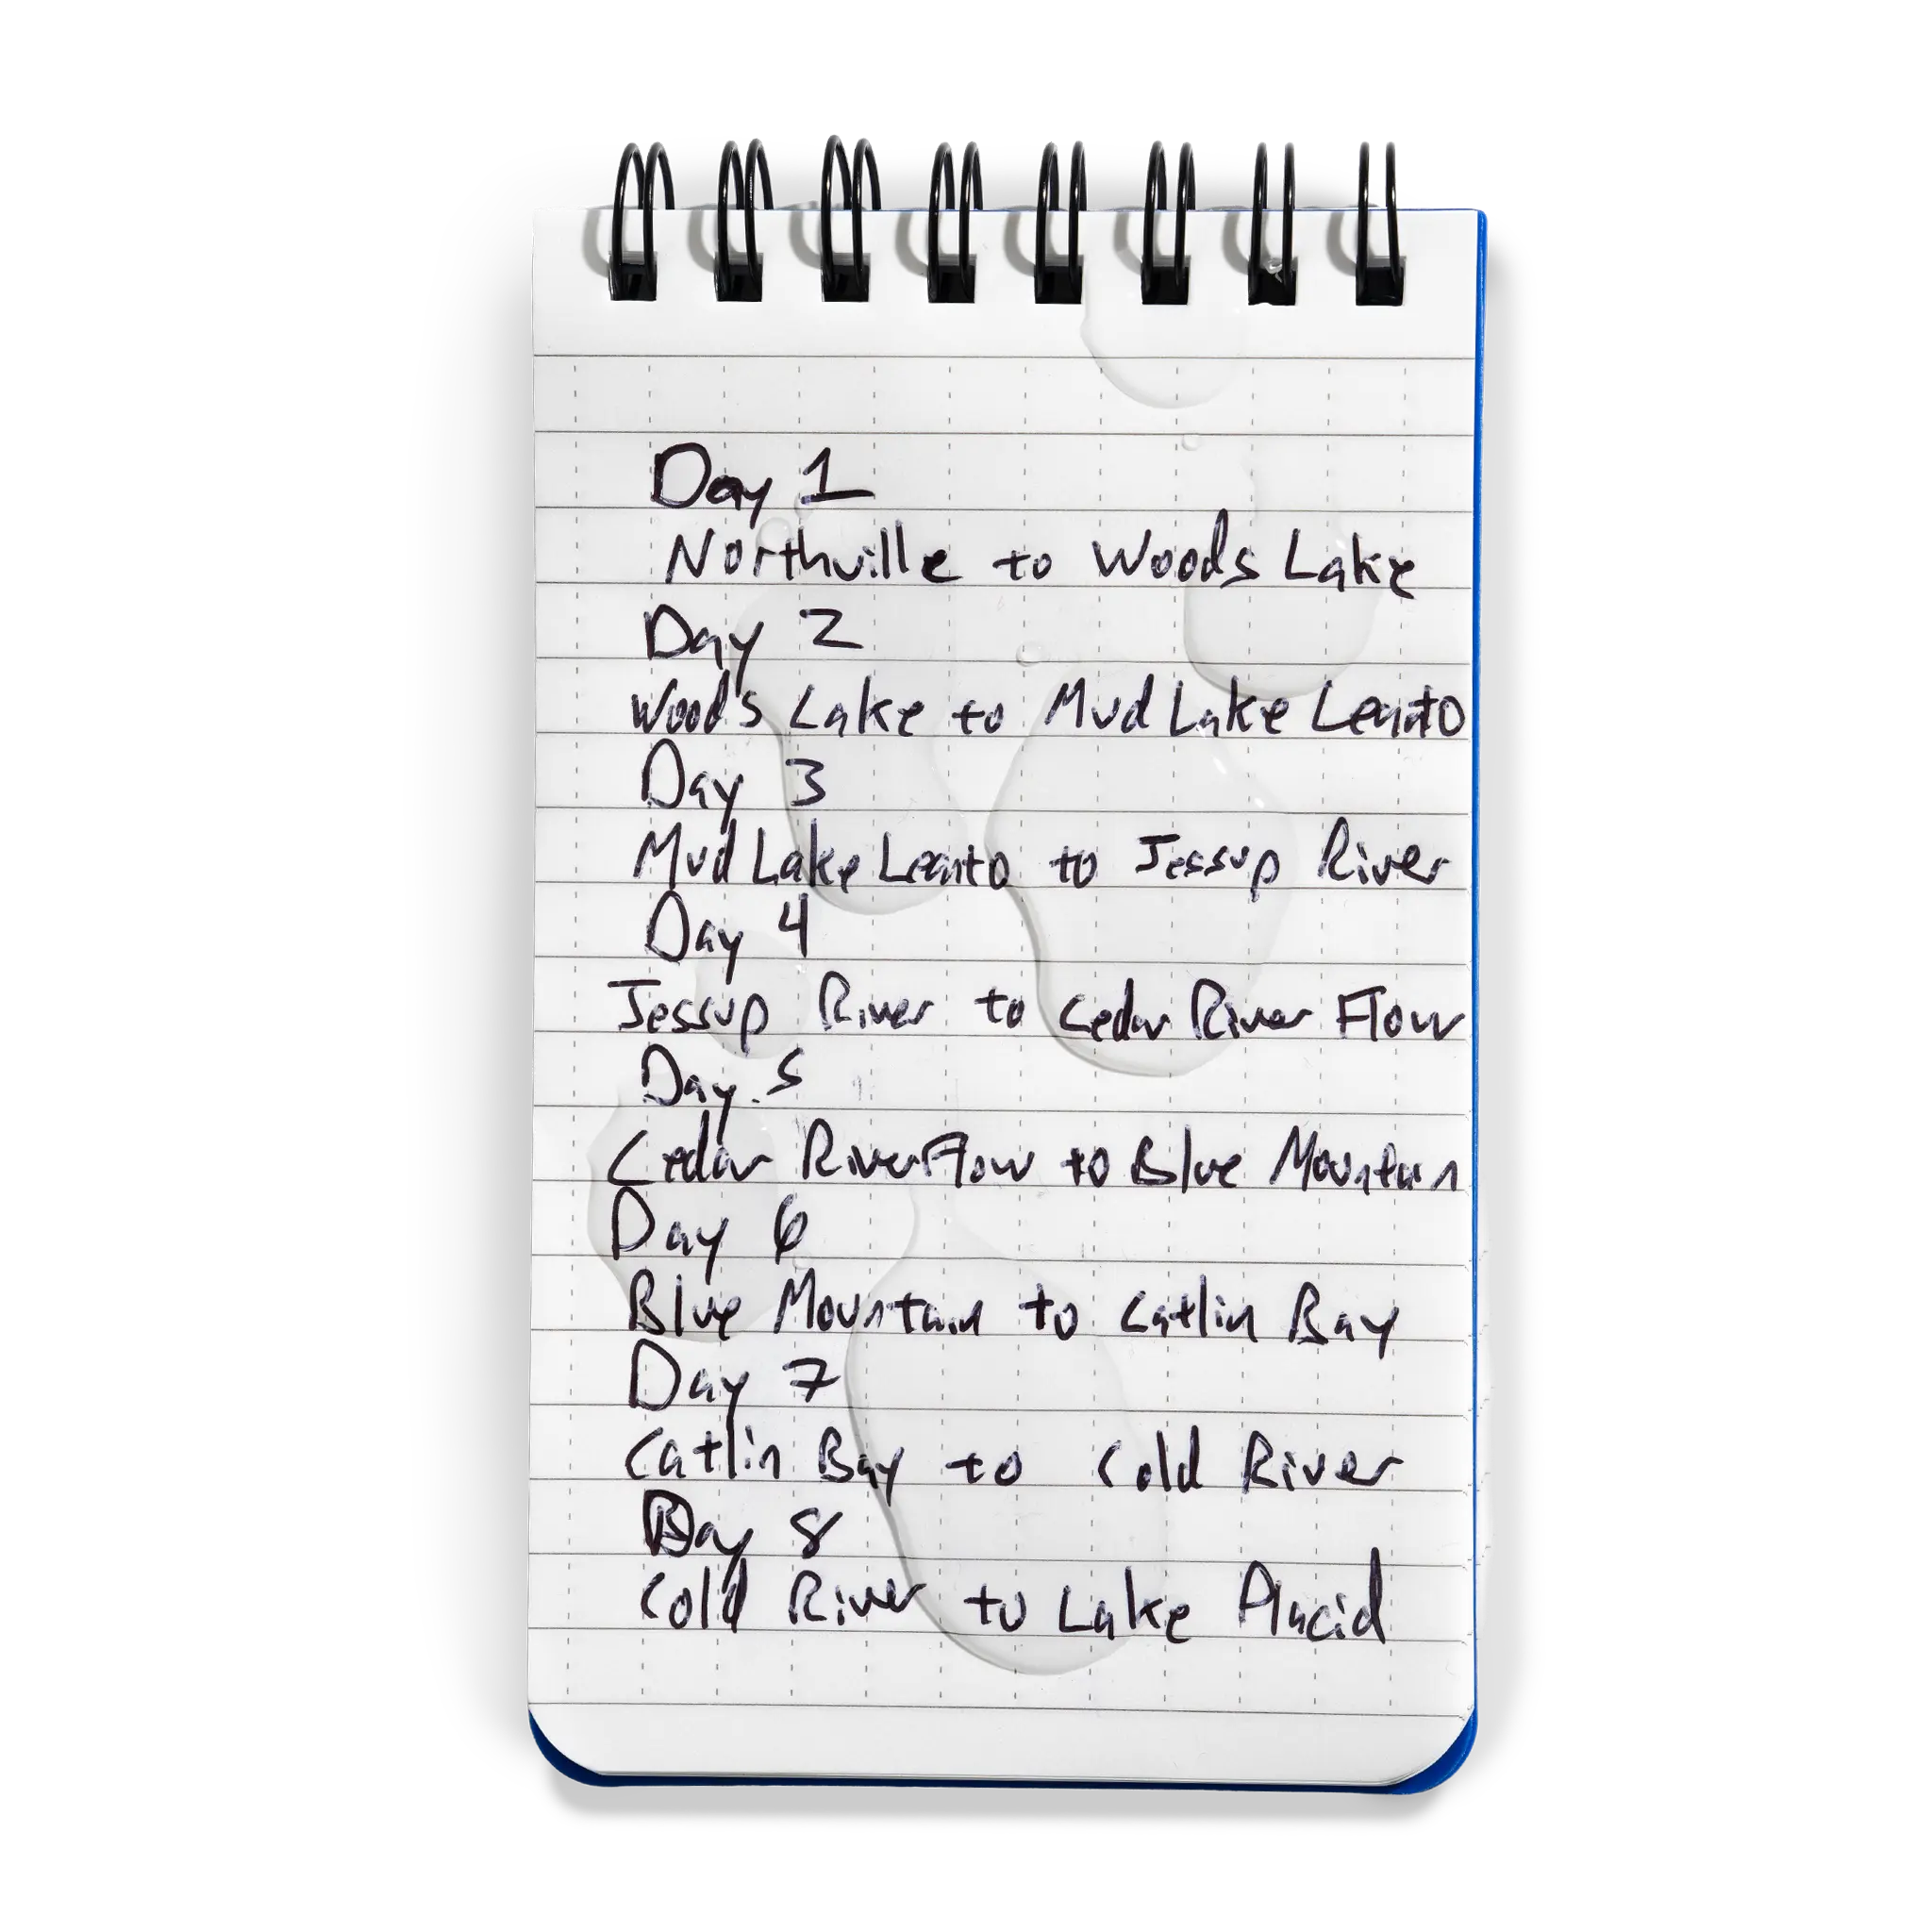 Day 1
Northville to Woods Lake
Day 2
Woods Lake to Mud Lake Leanto
Day 3
Mud Lake Leanto to Jessup River
Day 4
Jessup River to Cedar River Flow
Day 5
Cedar River Flow to Blue Mountain
Day 6
Blue Mountain to Catlin Bay
Day 7
Catlin Bay to Cold River
Day 8
Cold River to Lake Placid